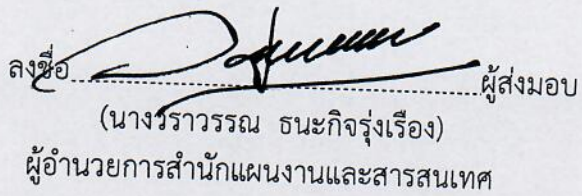 ลงชื่อ........................................ผู้ส่งมอบ
(นางวราวรรณ ธนะกิจรุ่งเรือง)
ผู้อำนวยการสำนักแผนงานและสารสนเทศ